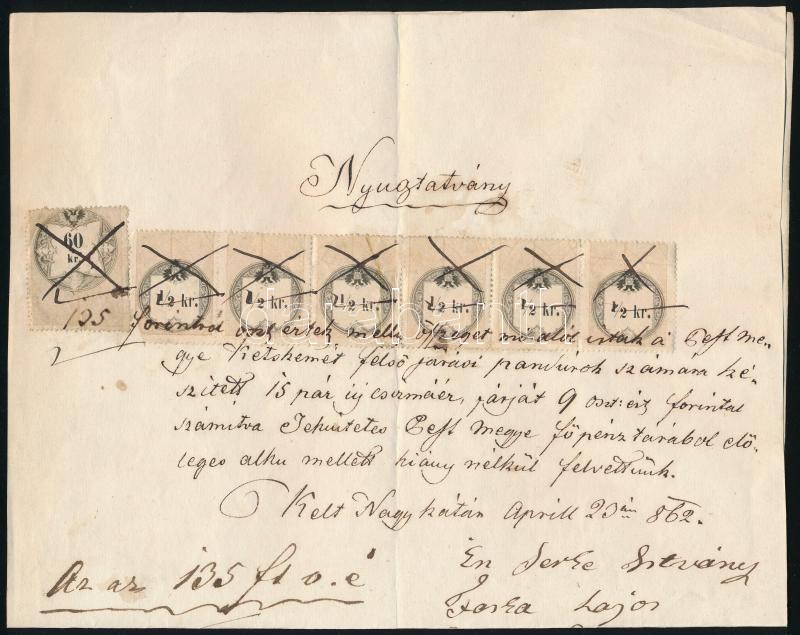 Nyugtatvány
60 kr.
1/2 kr. 1/2 kr. 1/2 kr. 1/2 kr. 1/2 kr. 1/2 kr.
135 forintról oszt értek melly összeget mi alól irtak a Pest me-
gye Ketskemét felső járási pandúrok számára ké-
szített 15 pár új csizmáér, párját 9 oszt: ért, forintal
számitva Tekintetes Pest Megye fő pénztárából elő-
leges alku mellett hiány nélkül felvettünk.
Kelt Nagykátán Aprill 23án 862.
Az az 135 ft o. é
Én István
Farka Lajos